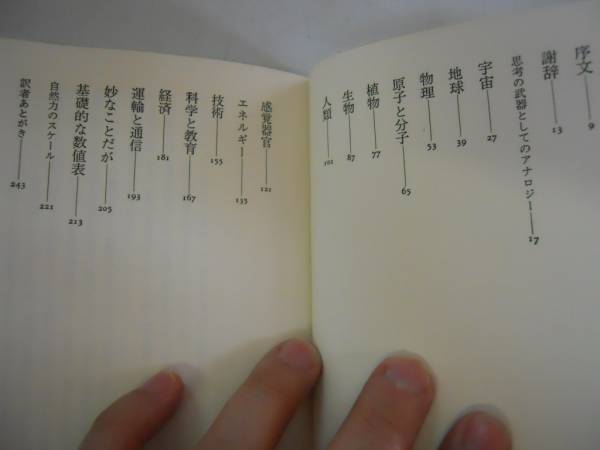 序文——9
謝辞——13
思考の武器としてのアナロジー——17
宇宙——27
地球——39
物理——53
原子と分子——65
植物——77
生物——87
人類——101
感覚器官——121
エネルギー——135
技術——155
科学と教育——167
経済——181
運輸と通信——193
妙なことだが——205
基礎的な数値表——213
自然力のスケール——221
訳者あとがき——243